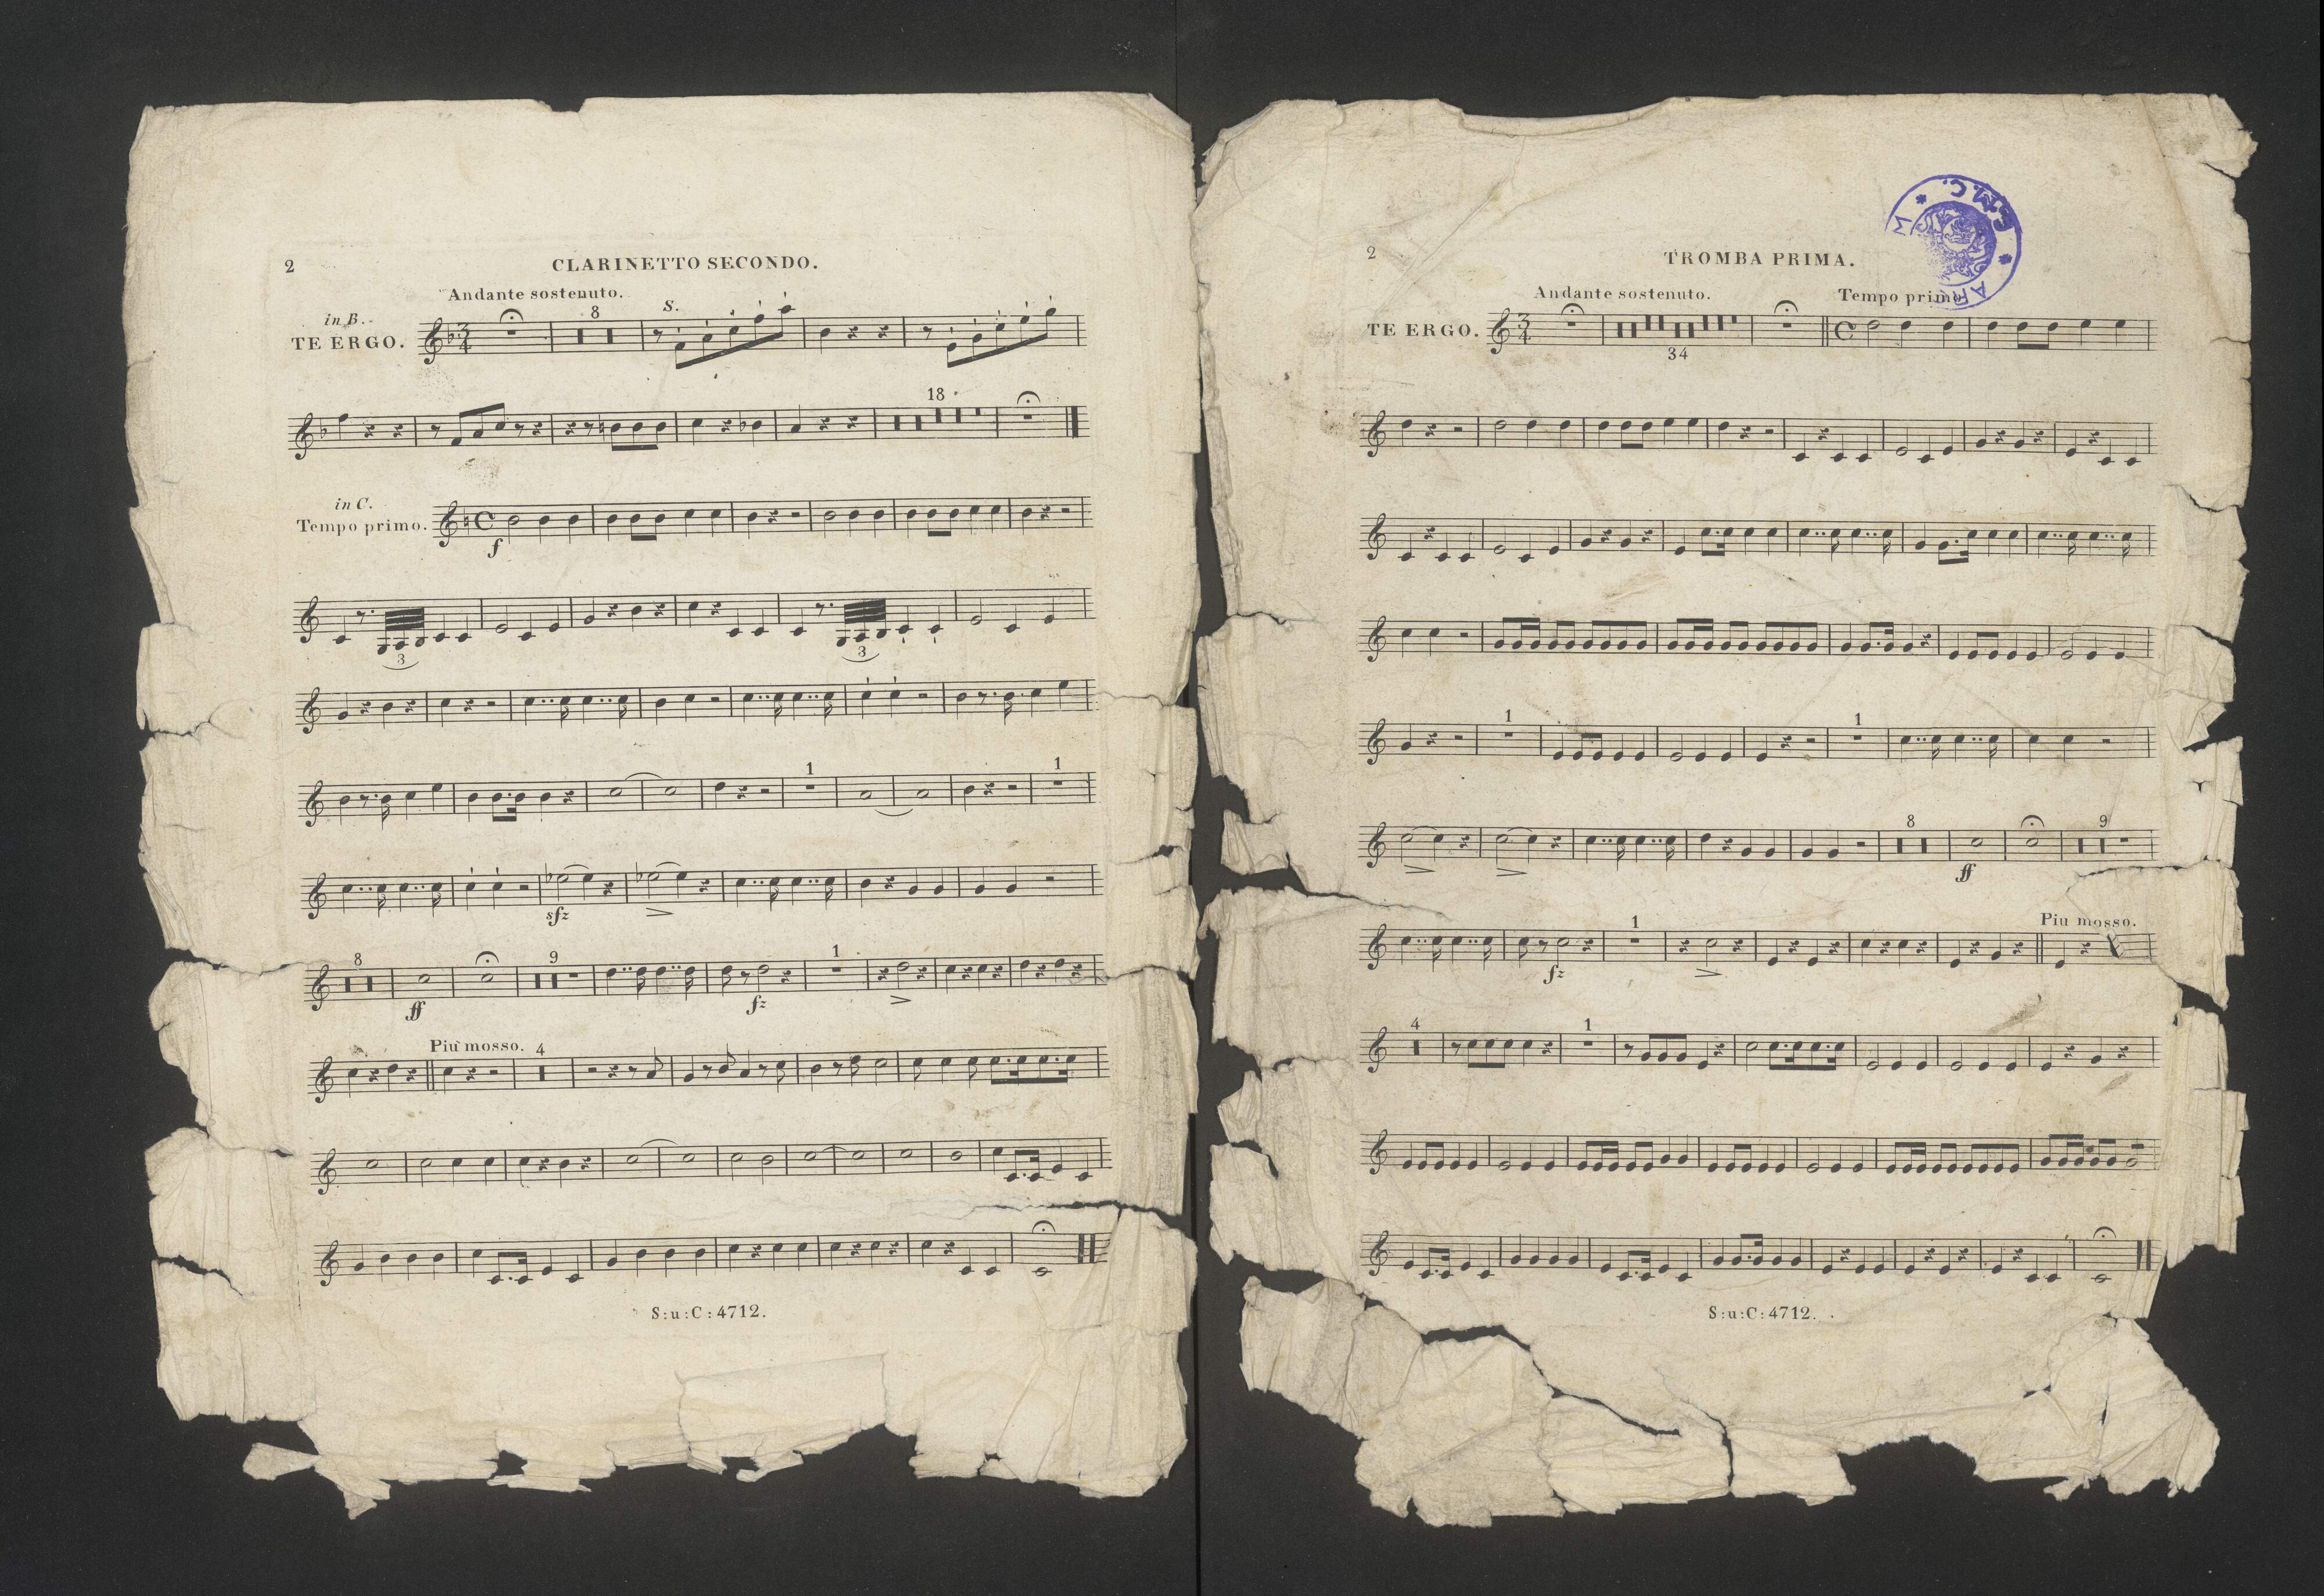 2
CLARINETTO SECONDO.
Andante sostenuto.
in B.
TE ERGO.
8
S.
3
4
18
in C.
Tempo primo.
f
3
3
1
1
sfz
8
ff
9
fz
1
Più mosso.
4
S:u:C:4712.
2
TROMBA PRIMA.
Andante sostenuto.
Tempo primo
TE ERGO.
3
4
34
1
1
8
ff
9
fz
1
Piu mosso.
4
1
S:u:C:4712.
S.M.C.